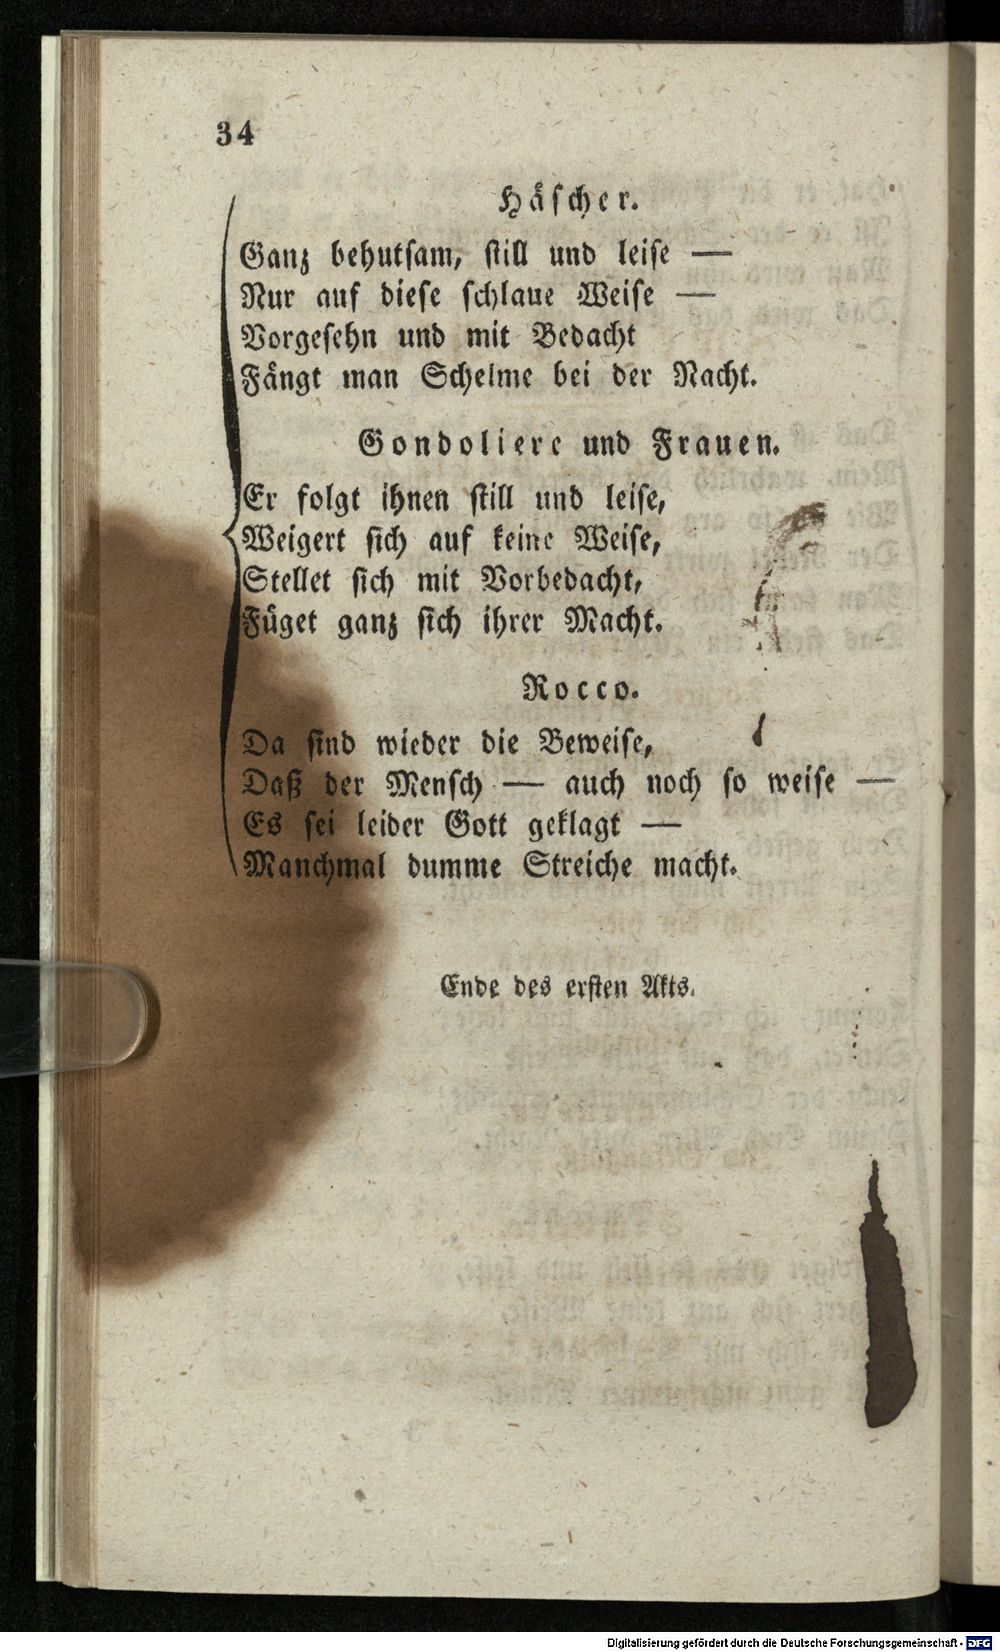 34
Häscher.
Ganz behutsam, still und leise —
Nur auf diese schlaue Weise —
Vorgesehn und mit Bedacht
Fängt man Schelme bei der Nacht.
Gondoliere und Frauen.
Er folgt ihnen still und leise,
Weigert sich auf keine Weise,
Stellet sich mit Vorbedacht,
Füget ganz sich ihrer Macht.
Rocco.
Da sind wieder die Beweise,
Daß der Mensch — auch noch so weise —
Es sei leider Gott geklagt —
Manchmal dumme Streiche macht.
Ende des ersten Akts.
Digitalisierung gefördert durch die Deutsche Forschungsgemeinschaft - DFG